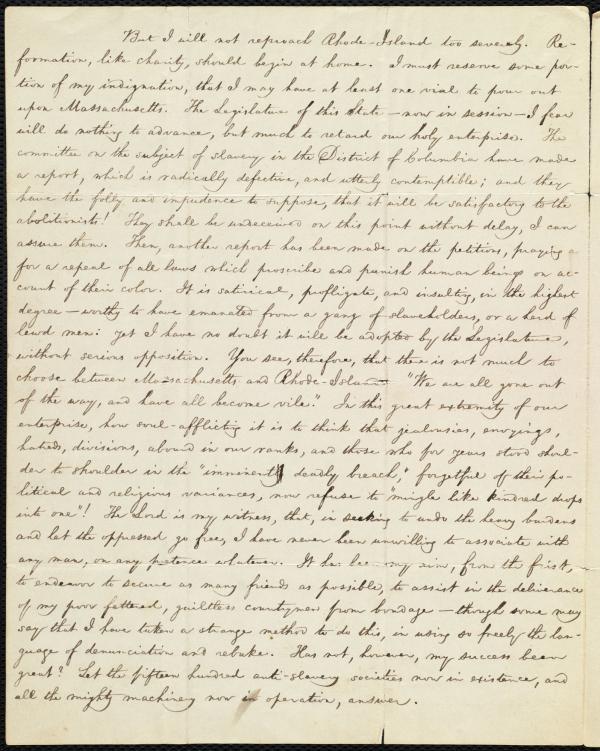 But I will not reproach Rhode-Island too severely. Re-
formation, like charity, should begin at home. I must reserve some por-
tion of my indignation, that I may have at least one vial to pour out
upon Massachusetts. The Legislature of this State — now in session — I fear
will do nothing to advance, but much to retard our holy enterprise. The
committee on the subject of slavery in the District of Columbia have made
a report, which is radically defective, and utterly contemptible; and they
have the folly and impudence to suppose, that it will be satisfactory to the
abolitionists! They shall be undeceived on this point without delay, I can
assure them. Then, another report has been made on the petitions, praying
for a repeal of all laws which proscribe and punish human beings on ac-
count of their color. It is satirical, profligate, and insulting, in the highest
degree — worthy to have emanated from a gang of slaveholders, or a herd of
lewd men: yet I have no doubt it will be adopted by the Legislature,
without serious opposition. You see, therefore, that there is not much to
choose between Massachusetts and Rhode-Island — "We are all gone out
of the way, and have all become vile." In this great extremity of our
enterprise, how soul-afflicting it is to think that jealousies, envyings,
hatreds, divisions, abound in our ranks, and those who for years stood shoul-
der to shoulder in the "imminent deadly breach," forgetful of their po-
litical and religious variances, now refuse to mingle like kindred drops
into one"! The Lord is my witness, that, in seeking to undo the heavy burdens
and let the oppressed go free, I have never been unwilling to associate with
any man, on any pretence whatever. It has been my aim, from the first,
to endeavor to secure as many friends as possible, to assist in the deliverance
of my poor fettered, guiltless countrymen from bondage — though some may
say that I have taken a strange method to do this, in using so freely the lan-
guage of denunciation and rebuke. Has not, however, my success been
great? Let the fifteen hundred anti-slavery societies now in existence, and
all the mighty machinery now in operation, answer.